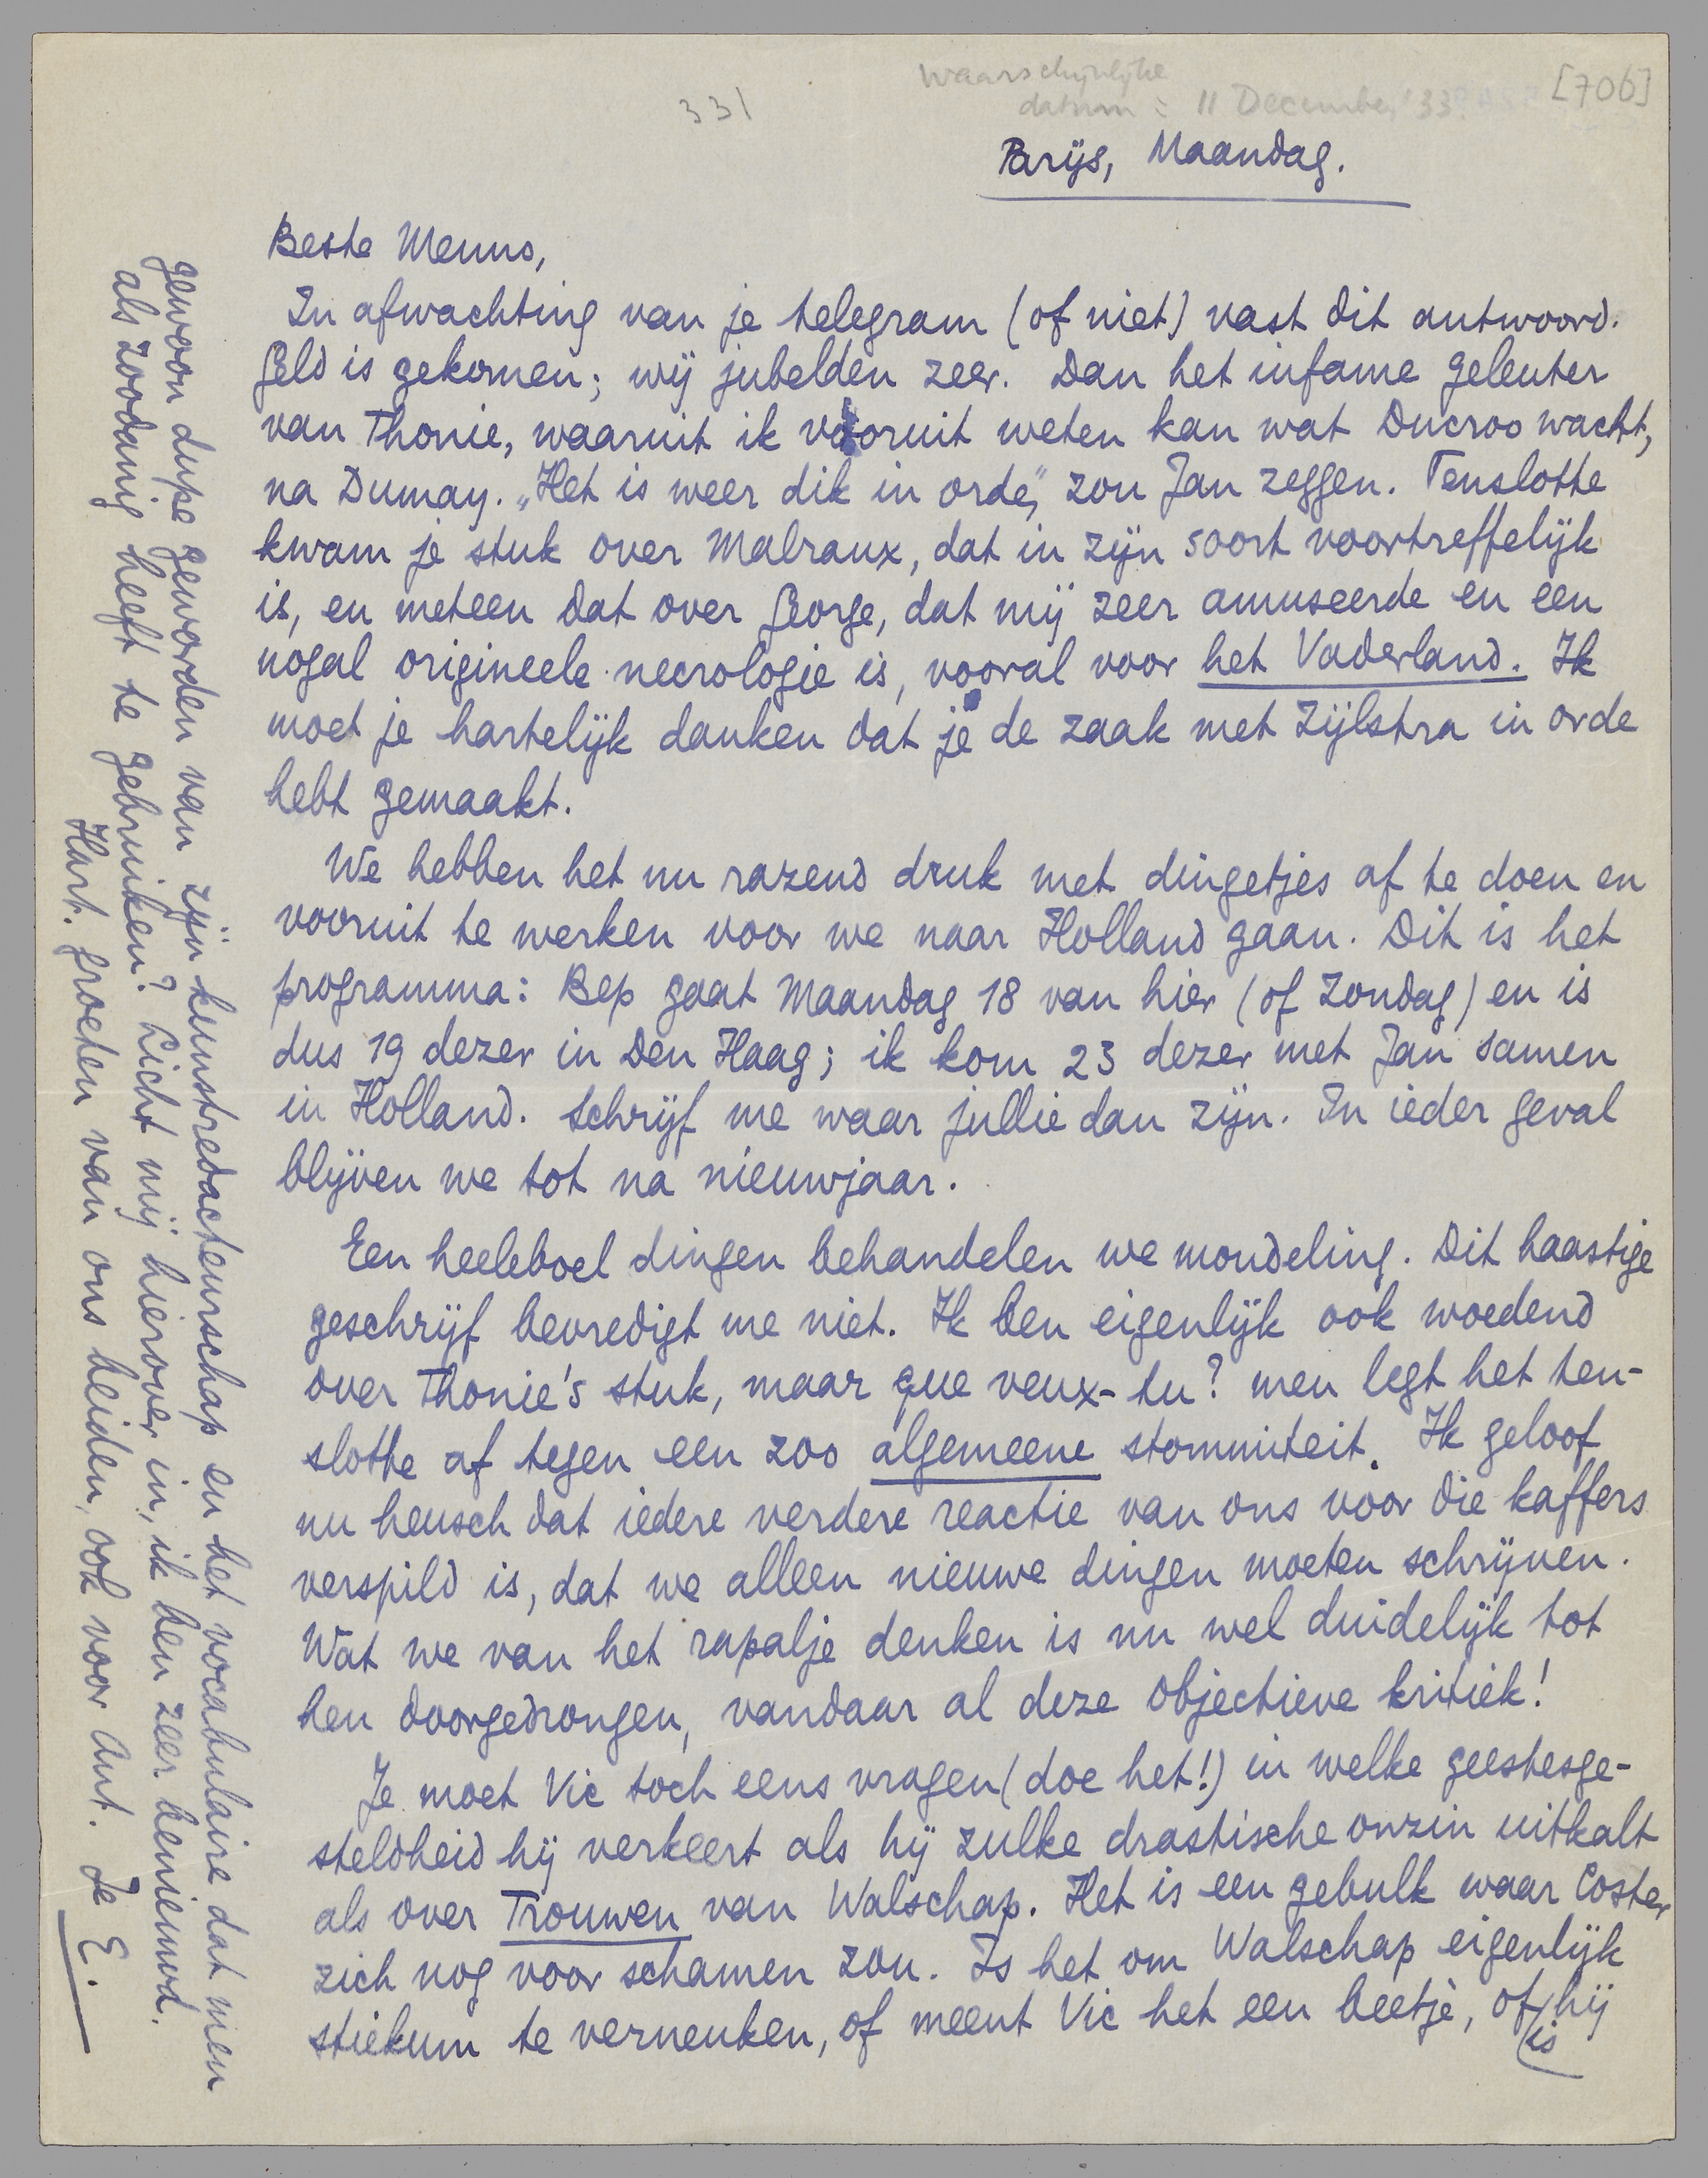 331
Waarschijnlijke
datum = 11 December '33?
[706]
Parijs, Maandag.
Beste Menno,
In afwachting van je telegram (of niet) vast dit antwoord.
Geld is gekomen; wij jubelden zeer. Dan het infame geleuter
van Thonie, waaruit ik vooruit weten kan wat Ducroo wacht,
na Dumay. „Het is weer dik in orde," zou Jan zeggen. Tenslotte
kwam je stuk over Malraux, dat in zijn soort voortreffelijk
is, en meteen dat over George, dat mij zeer amuseerde en een
nogal origineele necrologie is, vooral voor het Vaderland. Ik
moet je hartelijk danken dat je de zaak met Zijlstra in orde
hebt gemaakt.
We hebben het nu razend druk met dingetjes af te doen en
vooruit te werken voor we naar Holland gaan. Dit is het
programma: Bep gaat Maandag 18 van hier (of Zondag) en is
dus 19 dezer in Den Haag; ik kom 23 dezer met Jan samen
in Holland. Schrijf me waar jullie dan zijn. In ieder geval
blijven we tot na nieuwjaar.
Een heeleboel dingen behandelen we mondeling. Dit haastige
geschrijf bevredigt me niet. Ik ben eigenlijk ook woedend
over Thonie's stuk, maar que veux-tu? men legt het ten-
slotte af tegen een zoo algemeene stommiteit. Ik geloof
nu heusch dat iedere verdere reactie van ons voor die kaffers
verspild is, dat we alleen nieuwe dingen moeten schrijven.
Wat we van het rapalje denken is nu wel duidelijk tot
hen doorgedrongen, vandaar al deze objectieve kritiek!
Je moet Vic toch eens vragen (doe het!) in welke geestesge-
steldheid hij verkeert als hij zulke drastische onzin uitkalt
als over Trouwen van Walschap. Het is een gebulk waar Coster
zich nog voor schamen zou. Is het om Walschap eigenlijk
stiekum te verneuken, of meent Vic het een beetje, of is hij
gewoon dupe geworden van zijn kunstredacteurschap en het vocabulaire dat men
als zoodanig heeft te gebruiken? Licht mij hierover in, ik ben zeer benieuwd.
Hart. groeten van ons beiden, ook voor Ant. Je E.